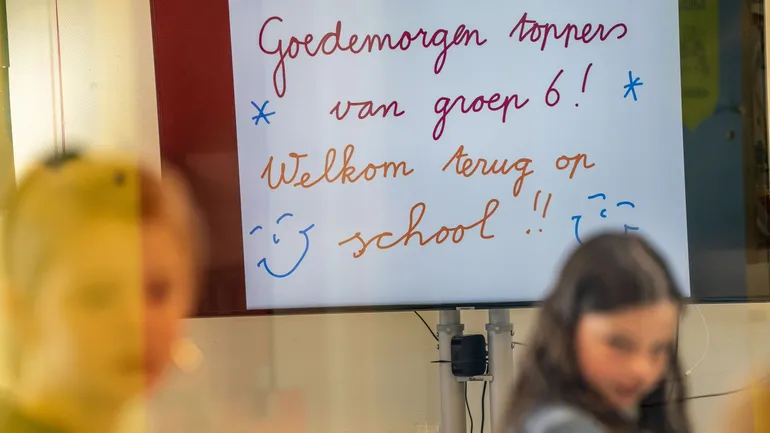 Goedemorgen toppers
van groep 6!
Welkom terug op
school!!